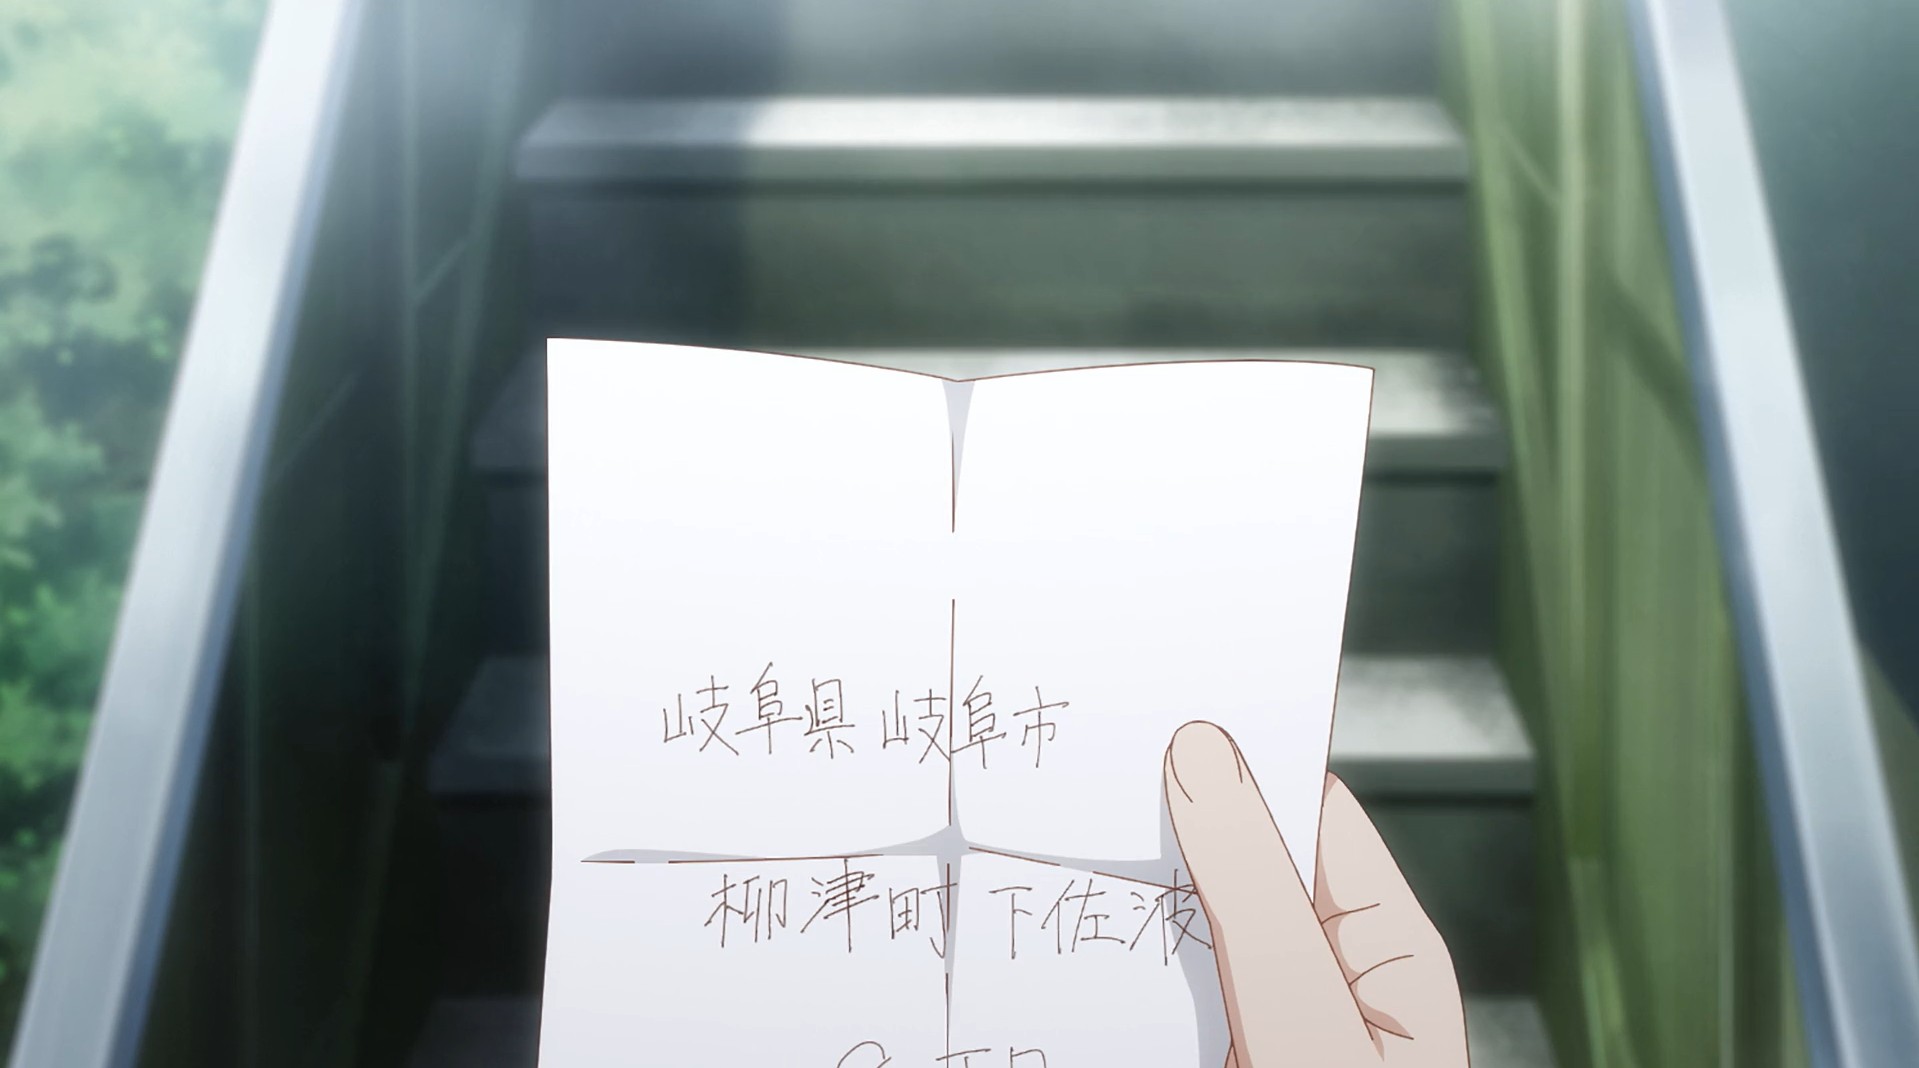 岐阜県岐阜市
柳津町下佐波